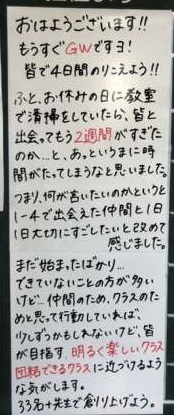 おはようございます!!
もうすぐGWですヨ!
皆で4日間のりこえよう!!
ふと、お休みの日に教室
で清掃をしていたら、皆と
出会ってもう2週間がすぎた
のか…と、あっというまに時
間がたってしまうなと思いました。
つまり、何が言いたいのかというと
1-4で出会えた仲間と1日
1日大切にすごしたいと改めて
感じました。
まだ始まったばかり…
できていないことの方が多い
けど…仲間のため、クラスのた
めと思って行動していれば、
少しずつかもしれないけど、皆
が目指す、明るく楽しいクラス
団結できるクラスに近づけるよう
な気がします。
33名+先生で創り上げよう。